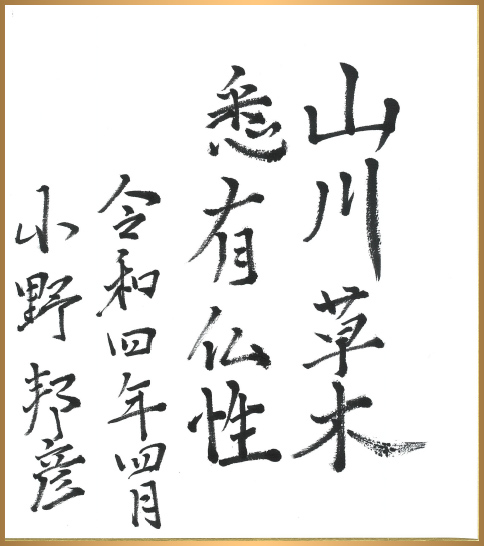 山川草木
悉有仏性
令和四年四月
小野邦彦